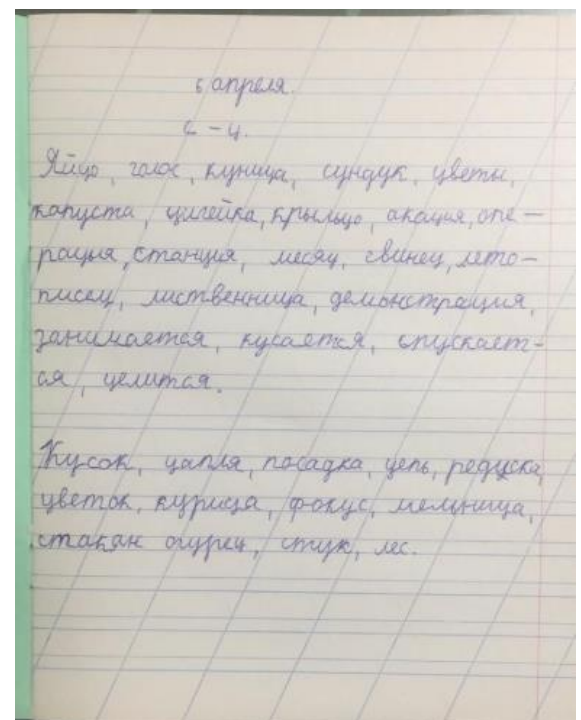 6 апреля.
с – ц.
Яйцо, голос, куница, сундук, цветы,
капуста, цигейка, крыльцо, акация, опе –
рация, станция, месяц, свинец, лето –
писец, лиственница, демонстрация,
занимается, кусается, опускает –
ся, целится.
Кусок, цапля, посадка, цепь, редиска,
цветок, курица, фокус, мельница,
стакан огурец, стук, лес.